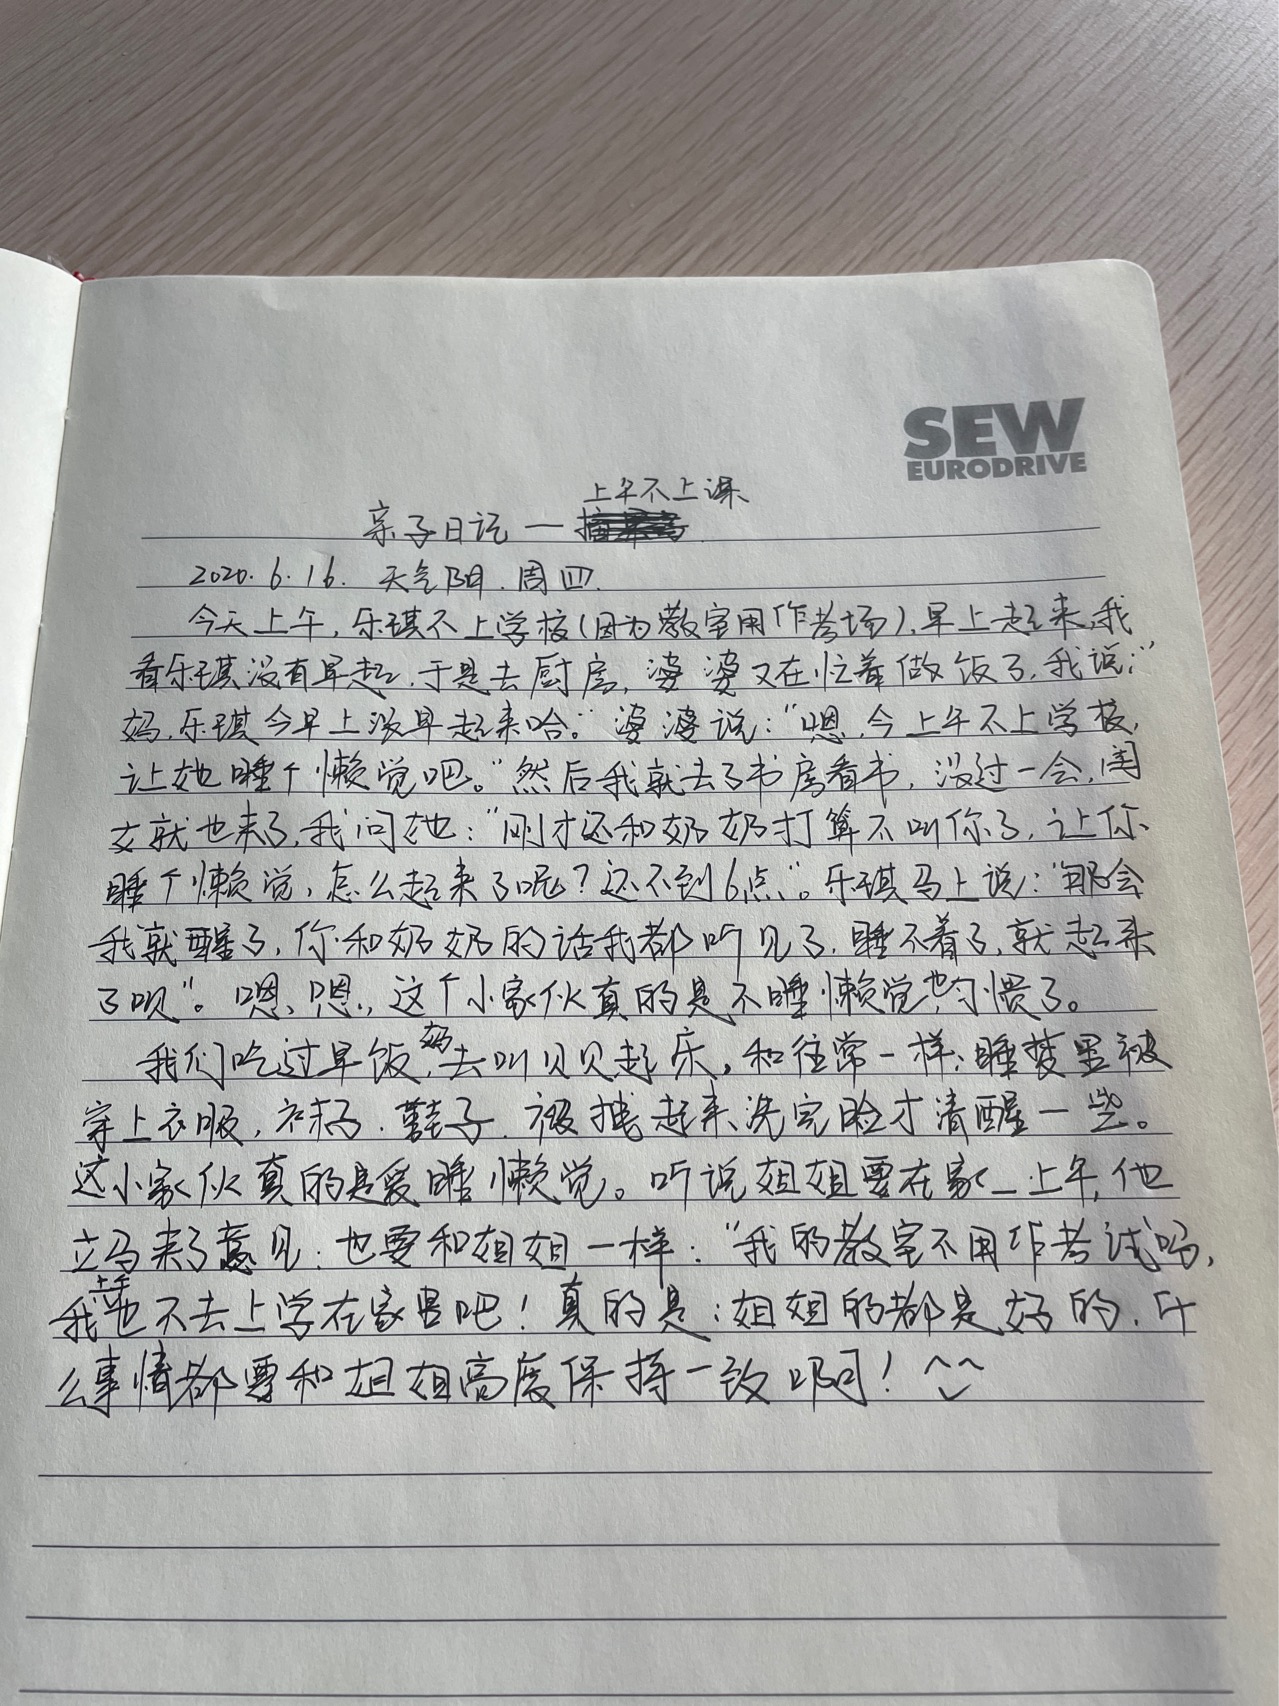 SEW
EURODRIVE
上午不上课
亲子日记一
2020.6.16. 天气阴.周四.
今天上午,乐琪不上学校(因为教室用作考场),早上起来,我
看乐琪没有早起,于是去厨房,婆婆又在忙着做饭了,我说:"
妈,乐琪今早上没早起来哈。"婆婆说:"嗯,今上午不上学校,
让她睡个懒觉吧。"然后我就去了书房看书,没过一会,闺
女就也来了,我问她:"刚才还和奶奶打算不叫你了,让你
睡个懒觉,怎么起来了呢?还不到6点"。乐琪马上说:"那会
我就醒了,你和奶奶的话我都听见了,睡不着了,就起来
了呗"。嗯、嗯,这个小家伙真的是不睡懒觉也习惯了。
我们吃过早饭,去叫贝贝起床。和往常一样:睡梦里被
穿上衣服,袜子.鞋子.被拽起来洗完脸才清醒一些。
这小家伙真的是爱睡懒觉。听说姐姐要在家一上午,他
立马来了意见:也要和姐姐一样:"我的教室不用作考试吗,
我上午也不去上学在家里吧!真的是:姐姐的都是好的.什
么事情都要和姐姐高度保持一致啊!^‿^